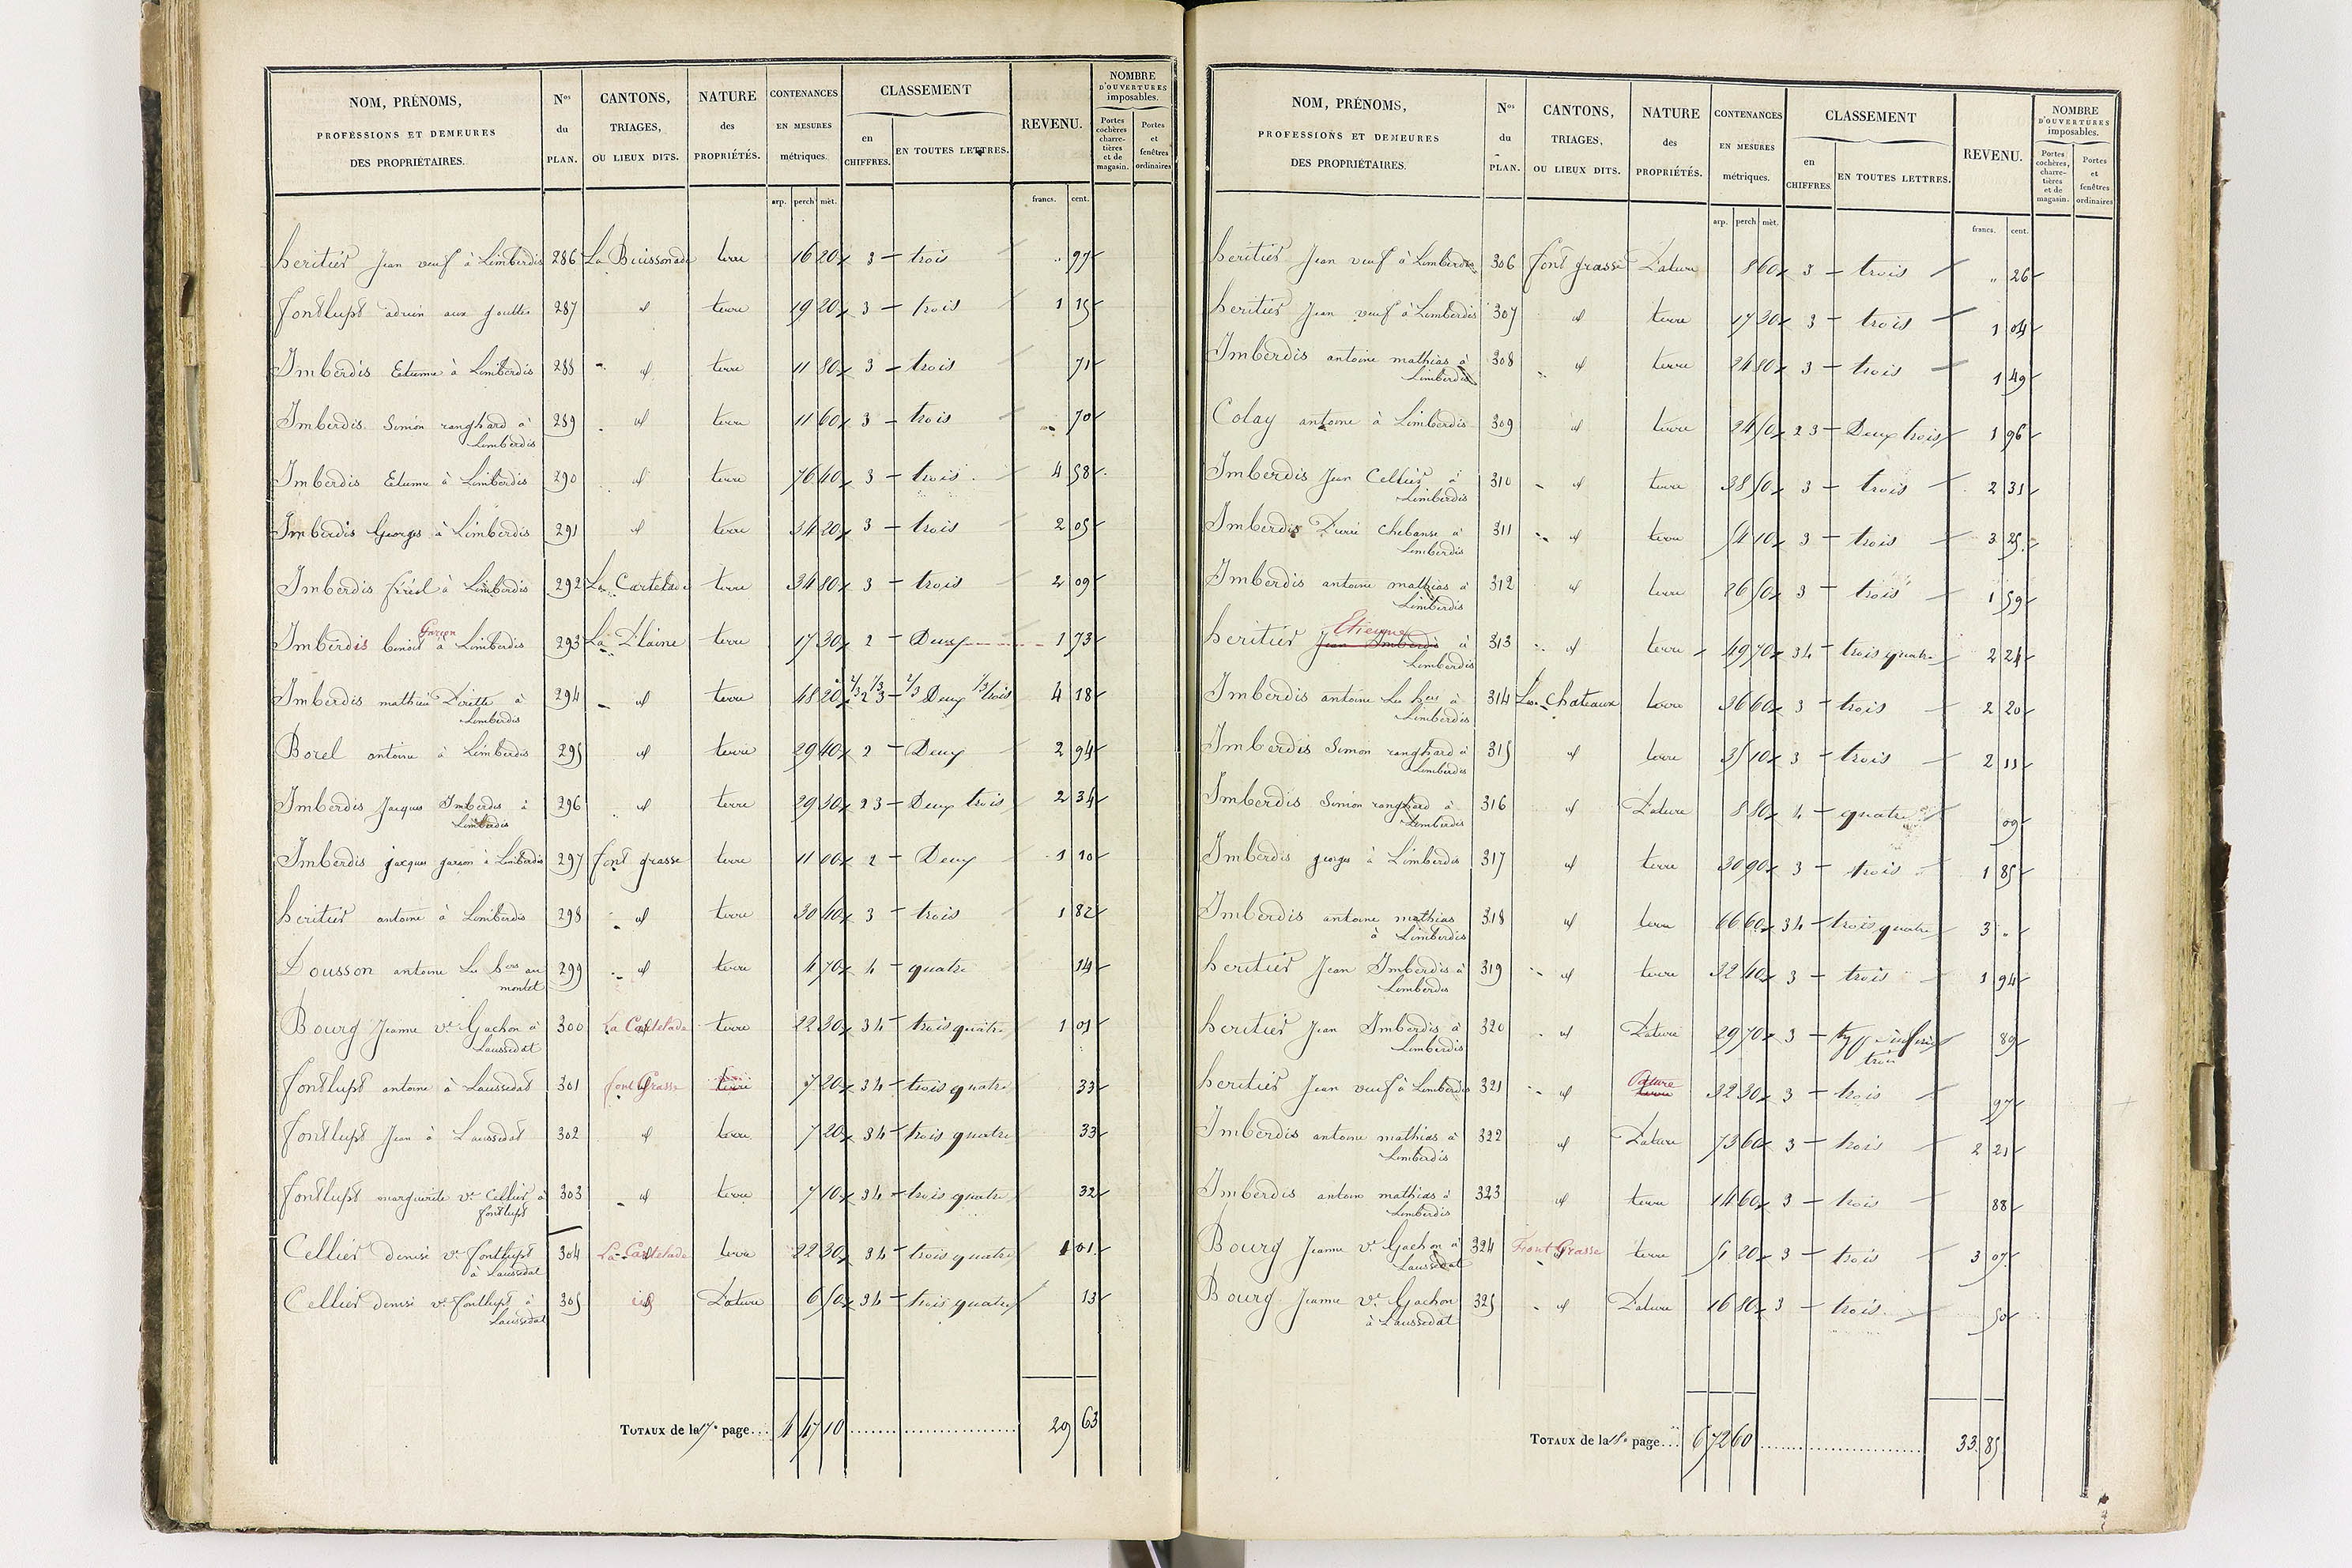 NOM, PRÉNOMS, PROFESSIONS ET DEMEURES DES PROPRIÉTAIRES. | Nos du PLAN. | CANTONS, TRIAGES, OU LIEUX DITS. | NATURE des PROPRIÉTÉS. | CONTENANCES EN MESURES métriques. | CLASSEMENT en CHIFFRES. | EN TOUTES LETTRES. | REVENU. | NOMBRE D'OUVERTURES imposables. Portes cochères charretières et de magasin. | Portes et fenêtres ordinaires
arp. perch. mèt. francs. cent.
heritier Jean veuf à Limberdis 286 La Buissonade terre 16 20 3 trois " 97
fontlupt adrien aux goutte 287 id terre 19 20 3 trois 1 15
Imberdis Etienne à Limberdis 288 id terre 11 80 3 trois 71
Imberdis Simon ranghard à Limberdis 289 id terre 11 60 3 trois 70
Imberdis Etienne à Limberdis 290 id terre 76 40 3 trois 4 58
Imberdis Georges à Limberdis 291 id terre 34 20 3 trois 2 05
Imberdis à Limberdis 292 La Cartelade terre 34 80 3 trois 2 09
Imberdis benoit Garçon à Limberdis 293 La Plaine terre 17 30 2 Deux 1 73
Imberdis mathieu à Limberdis 294 id terre 48 20 2/3 2 1/3 3 2/3 Deux 1/3 trois 4 18
Borel antoine à Limberdis 295 id terre 29 40 2 Deux 2 94
Imberdis Jacques Imberdis à Limberdis 296 id terre 29 30 2 3 Deux trois 2 34
Imberdis jacques garson à Limberdis 297 font grasse terre 11 00 2 Deux 1 10
heritier antoine à Limberdis 298 id terre 30 40 3 trois 1 82
Dousson antoine Les hers au montet 299 id terre 4 70 4 quatre 14
Bourg Jeanne ve Gachon à Laussedat 300 La Cartelade terre 22 30 3 4 trois quatre 1 01
fontlupt antoine à Laussedat 301 font Grasse terre 7 20 3 4 trois quatre 33
fontlupt Jean à Laussedat 302 id terre 7 20 3 4 trois quatre 33
fontlupt marguerite ve Cellier à fontlupt 303 id terre 7 10 3 4 trois quatre 32
Cellier denise ve fontlupt à Laussedat 304 La Cartelade terre 22 30 3 4 trois quatre 1 01
Cellier denise ve fontlupt à Laussedat 305 id Pature 6 50 3 4 trois quatre 13
TOTAUX de la 17e page... 4 47 10 29 63
NOM, PRÉNOMS, PROFESSIONS ET DEMEURES DES PROPRIÉTAIRES. | Nos du PLAN. | CANTONS, TRIAGES, OU LIEUX DITS. | NATURE des PROPRIÉTÉS. | CONTENANCES EN MESURES métriques. | CLASSEMENT en CHIFFRES. | EN TOUTES LETTRES. | REVENU. | NOMBRE D'OUVERTURES imposables. Portes cochères, charretières et de magasin. | Portes et fenêtres ordinaires
arp. perch. mèt. francs. cent.
heritier Jean veuf à Limberdis 306 font grasse Pature 8 60 3 trois " 26
heritier Jean veuf à Limberdis 307 id terre 17 30 3 trois 1 04
Imberdis antoine mathias à Limberdis 308 id terre 24 80 3 trois 1 49
Colay antoine à Limberdis 309 id terre 24 50 2 3 Deux trois 1 96
Imberdis Jean Cellier à Limberdis 310 id terre 38 50 3 trois 2 31
Imberdis Pierre Chebanse à Limberdis 311 id terre 54 10 3 trois 3 25
Imberdis antoine mathias à Limberdis 312 id terre 26 50 3 trois 1 59
heritier Jean Imberdis Etienne à Limberdis 313 id terre 49 70 3 4 trois quatre 2 24
Imberdis antoine Les hers à Limberdis 314 Les Chateaux terre 36 60 3 trois 2 20
Imberdis Simon ranghard à Limberdis 315 id terre 35 10 3 trois 2 11
Imberdis Simon ranghard à Limberdis 316 id Pature 8 80 4 quatre 09
Imberdis georges à Limberdis 317 id terre 30 90 3 trois 1 85
Imberdis antoine mathias à Limberdis 318 id terre 66 60 3 4 trois quatre 3 "
heritier Jean Imberdis à Limberdis 319 id terre 32 40 3 trois 1 94
heritier Jean Imberdis à Limberdis 320 id Pature 29 70 3 trois 89
heritier Jean veuf à Limberdis 321 id terre Pature 32 30 3 trois 97
Imberdis antoine mathias à Limberdis 322 id Pature 73 60 3 trois 2 21
Imberdis antoine mathias à Limberdis 323 id terre 14 60 3 trois 88
Bourg Jeanne ve Gachon à Laussedat 324 Font Grasse terre 51 20 3 trois 3 07
Bourg Jeanne ve Gachon à Laussedat 325 id Pature 16 80 3 trois 50
TOTAUX de la 18e page... 6 72 60 33 85